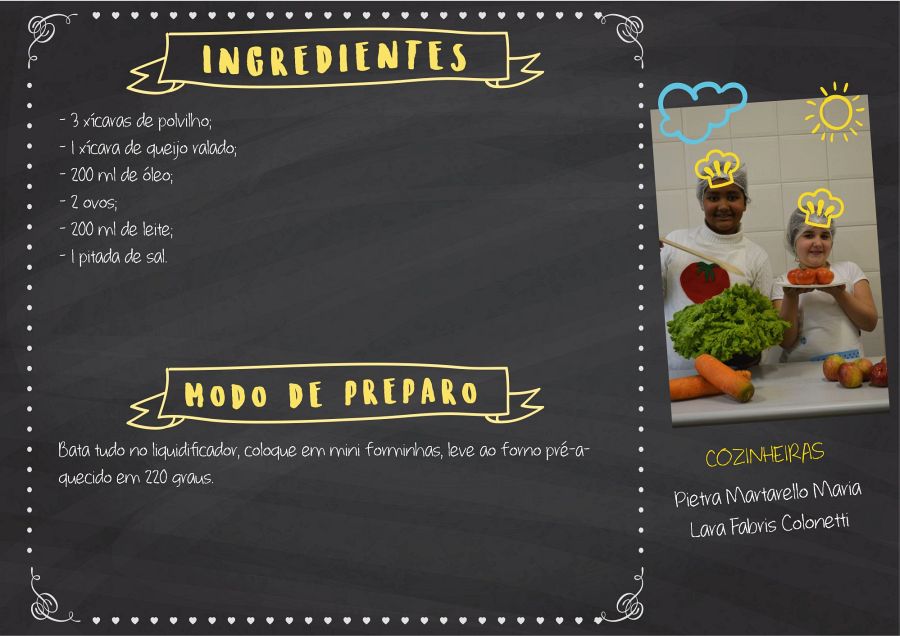 INGREDIENTES
- 3 xícaras de polvilho;
- 1 xícara de queijo ralado;
- 200 ml de óleo;
- 2 ovos;
- 200 ml de leite;
- 1 pitada de sal.
MODO DE PREPARO
Bata tudo no liquidificador, coloque em mini forminhas, leve ao forno pré-a-
quecido em 220 graus.
COZINHEIRAS
Pietra Martarello Maria
Lara Fabris Colonetti